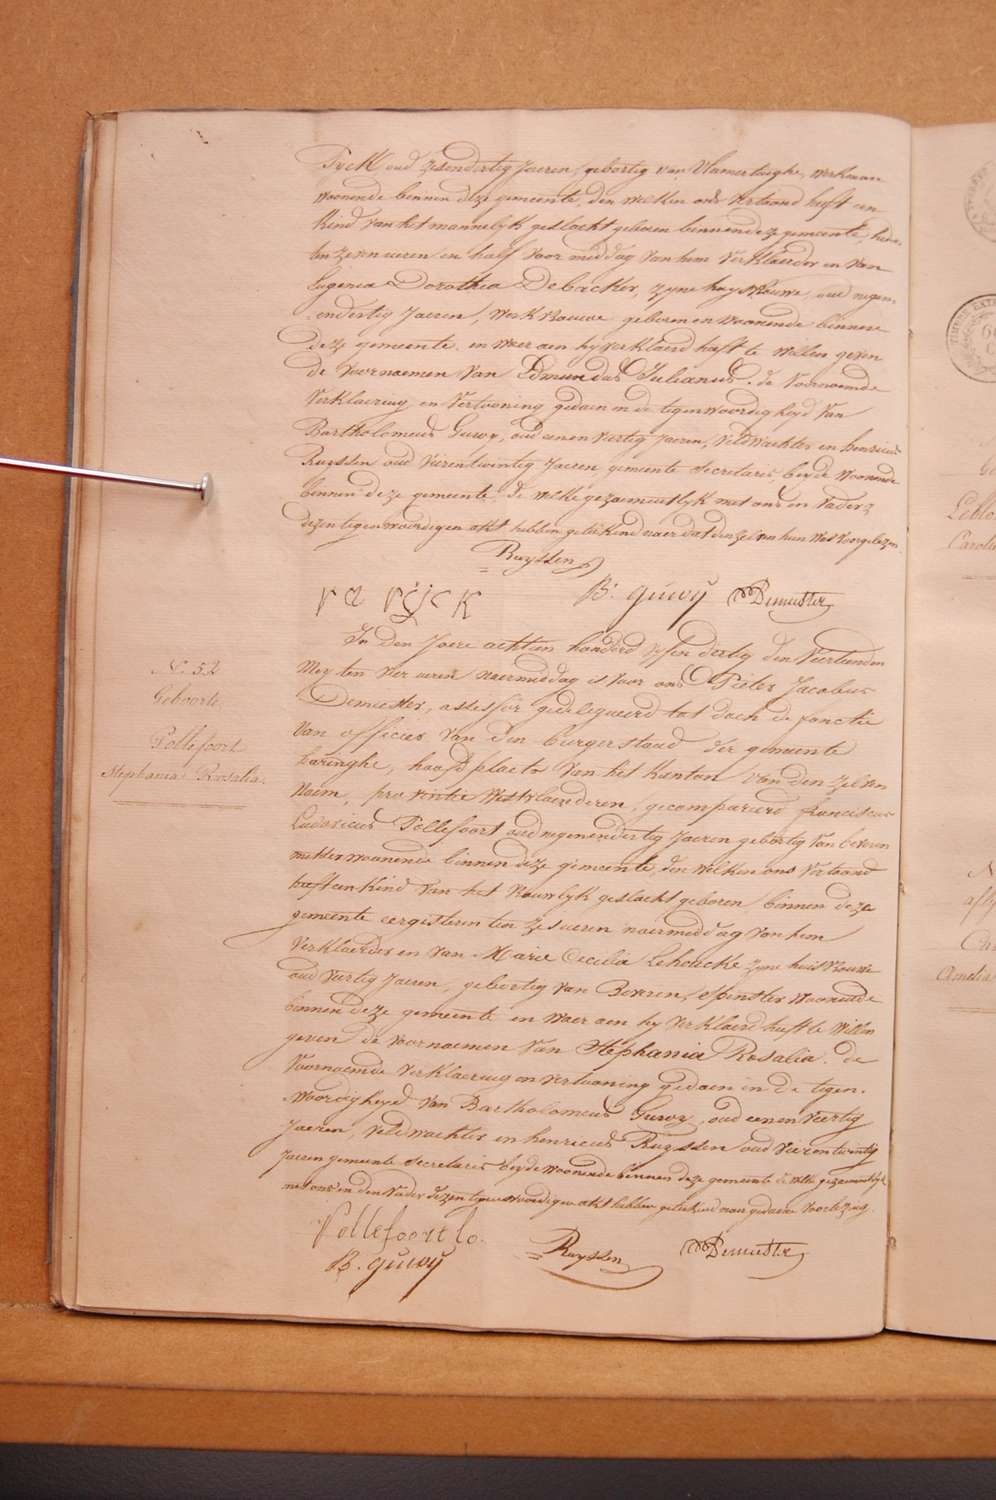 Tyck oud zesendertig Jaeren, gebortig van Vlamertinghe, werkman
woonende binnen deze gemeente, den welken ons vertoond heeft een
kind van het mannelyk geslacht geboren binnen deze gemeente, heden
ten zeven ueren en half voormiddag van hem verklaerder en van
Eugenia Dorothea Debacker, zyne huysvrouwe, oud negen-
endertig Jaeren, werkvrouwe geboren en woonende binnen
deze gemeente. en waer aen hy verklaerd heeft te willen geven
de voornaemen van Edmundus Julianus. de voornoemde
verklaering en vertooning gedaen in de tegenwoordigheyd van
Bartholomeus Guwy, oud eenen veertig Jaeren, veldwachter en henricus
Ruyssen oud vierentwintig Jaeren, gemeente secretaris, beyde woonende
binnen deze gemeente, de welke gezaementlyk met ons en vader
dezen tegenwoordigen akt hebben geteekend naer dat den zelven hun was voorgelezen.
Ruyssen
B. guwy Demeester
In den Jaere achtien honderd vyfen dertig den Veertienden
Mey ten vier ueren naermiddag is voor ons Pieter Jacobus
N. 52
Demeester, assessor gedelegueerd tot doen de functie
Geboorte
van officier van den burgerstand der gemeente
Pollefoort
haringhe, hoofdplaets van het kanton van den zelven
Stephania Rosalia.
naem, provintie Westvlaenderen, gecompareerd franciscus
Ludovicus Pollefoort oud negenendertig Jaeren gebortig van beveren
mulder woonende binnen deze gemeente, den welken ons vertoond
heeft een kind van het vrouwlyk geslacht geboren binnen deze
gemeente eergisteren ten zes ueren naermiddag van hem
verklaerder en van Marie Cecilia Lehoucke zyne huisvrouwe
oud veertig Jaeren, gebortig van Beveren, spinster woonende
binnen deze gemeente en waer aen hy verklaerd heeft te willen
geven de voornaemen van Stephania Rosalia. de
voornoemde verklaering en vertooning gedaen in de tegen-
woordigheyd van Bartholomeus Guwy, oud eenen veertig
Jaeren, veldwachter en henricus Ruyssen oud vierentwintig
Jaeren gemeente secretaris beyde woonende binnen deze gemeente de welke gezaementlyk
met ons en den vader dezen tegenwoordigen akt hebben geteekend naer gedaene voorlezing.
Pollefoort lo.
B. guwy Ruyssen Demeester